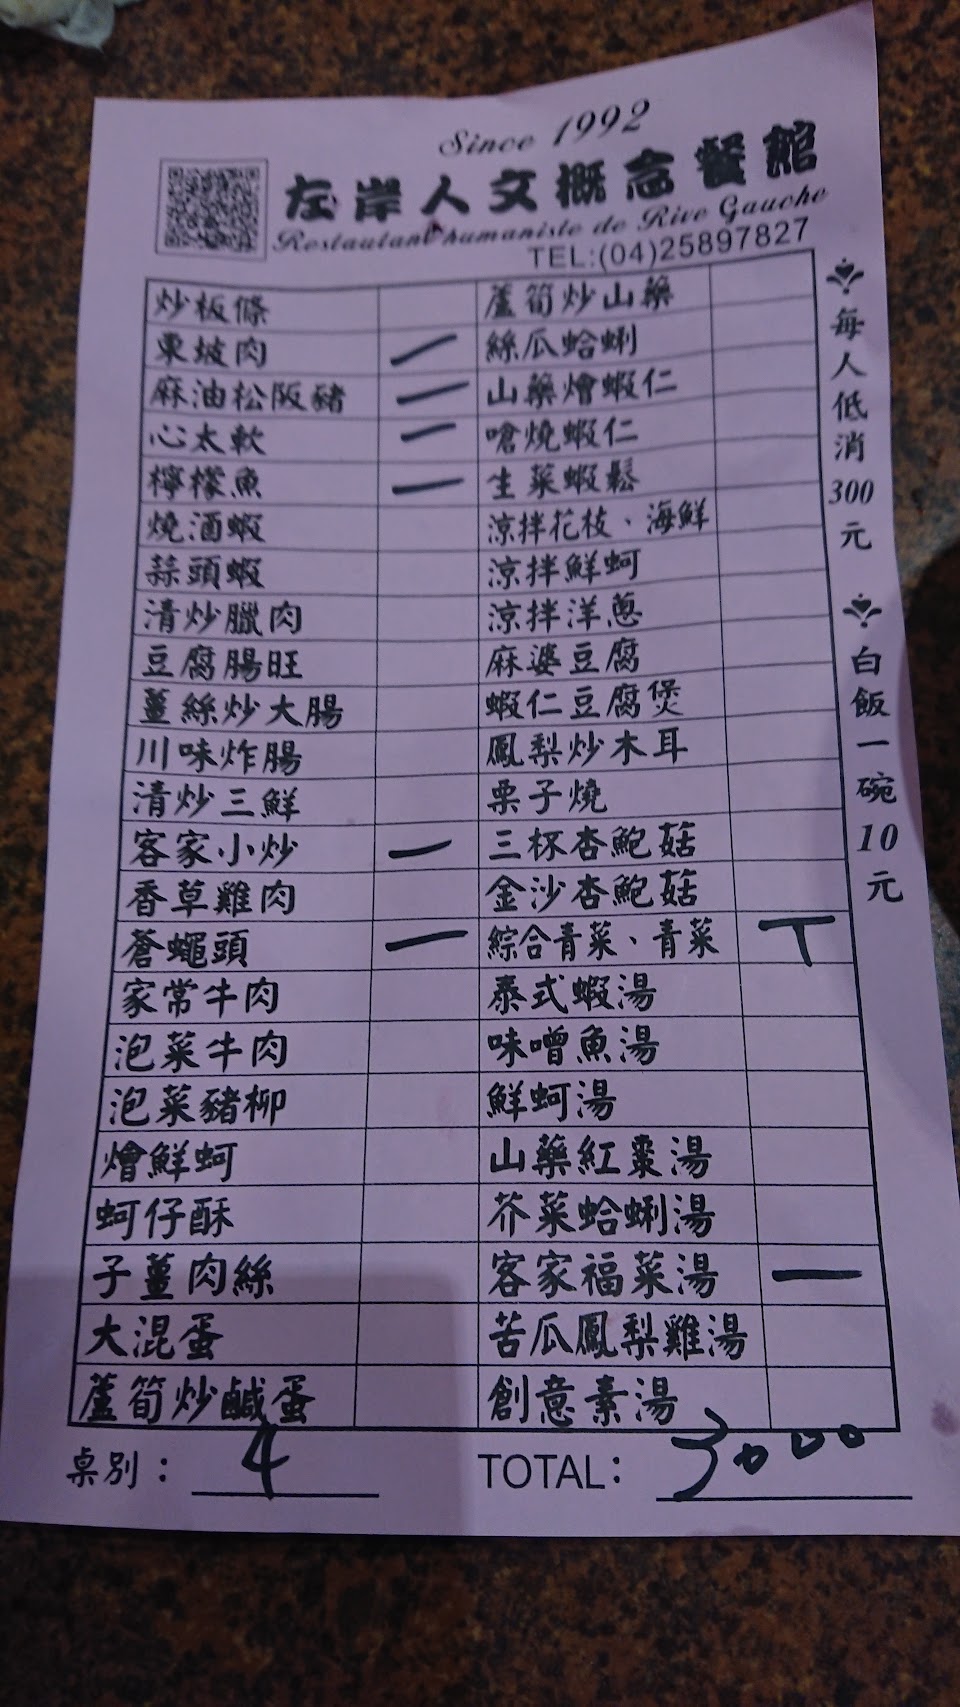 Since 1992
左岸人文概念餐館
Restaurant humaniste de Rive Gauche
TEL:(04)25897827
炒板條 蘆筍炒山藥
東坡肉 一 絲瓜蛤蜊
麻油松阪豬 一 山藥燴蝦仁
心太軟 一 嗆燒蝦仁
檸檬魚 一 生菜蝦鬆
燒酒蝦 涼拌花枝、海鮮
蒜頭蝦 涼拌鮮蚵
清炒臘肉 涼拌洋蔥
豆腐腸旺 麻婆豆腐
薑絲炒大腸 蝦仁豆腐煲
川味炸腸 鳳梨炒木耳
清炒三鮮 栗子燒
客家小炒 一 三杯杏鮑菇
香草雞肉 金沙杏鮑菇
蒼蠅頭 一 綜合青菜、青菜 丅
家常牛肉 泰式蝦湯
泡菜牛肉 味噌魚湯
泡菜豬柳 鮮蚵湯
燴鮮蚵 山藥紅棗湯
蚵仔酥 芥菜蛤蜊湯
子薑肉絲 客家福菜湯 一
大混蛋 苦瓜鳳梨雞湯
蘆筍炒鹹蛋 創意素湯
桌別： 4 TOTAL： 3000
每人低消300元
白飯一碗10元